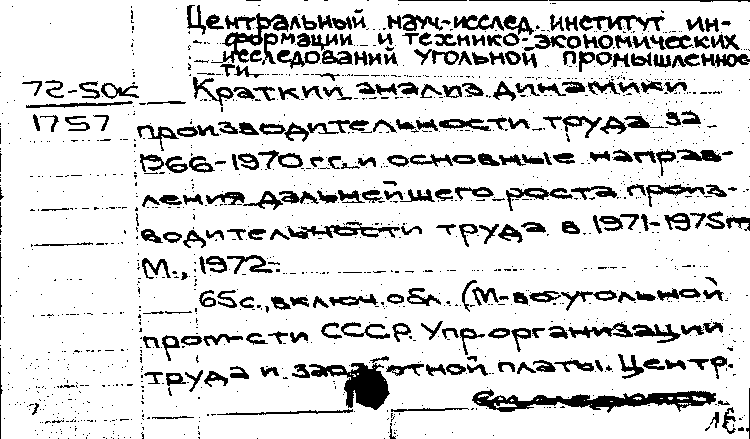 Центральный науч-исслед. институт ин-
формации и технико-экономических
исследований угольной промышленнос-
ти.
72-50к
1757
Краткий анализ динамики
производительности труда за
1966-1970 гг. и основные направ-
ления дальнейшего роста произ-
водительности труда в 1971-1975гг.
М., 1972.
65с., включ. обл. (М-во угольной
пром-сти СССР. Упр. организации
труда и заработной платы. Центр.